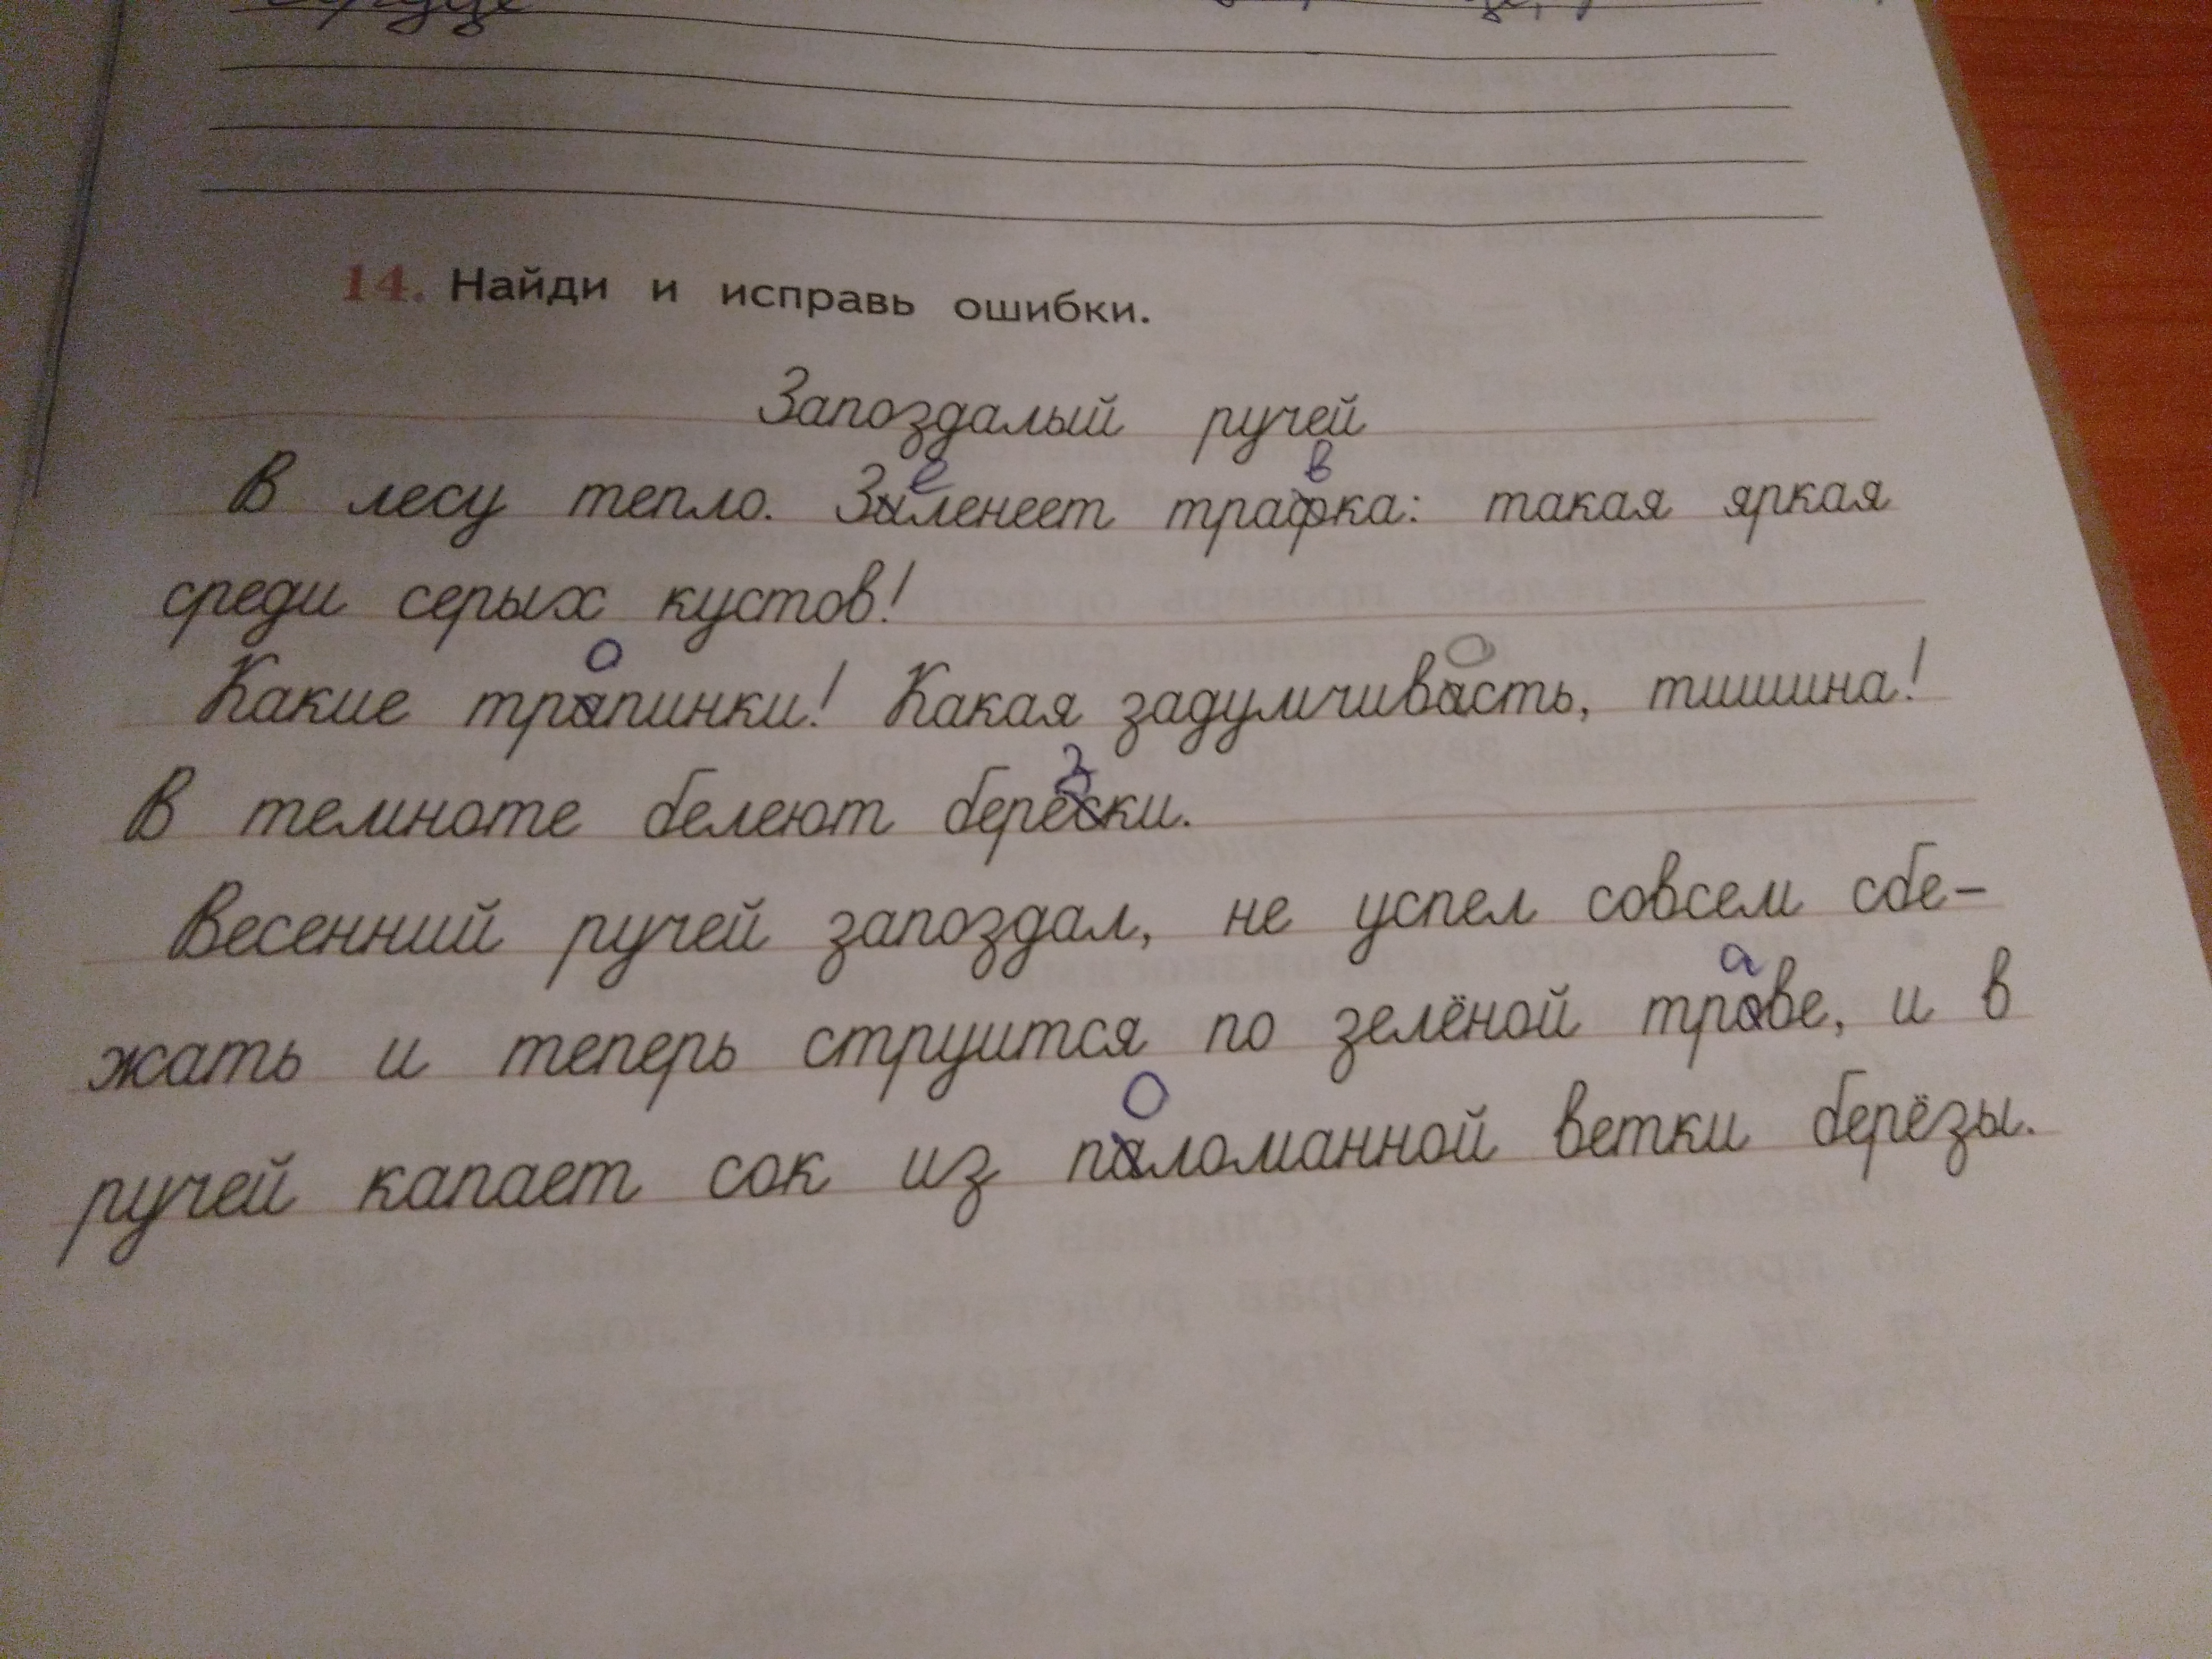 14. Найди и исправь ошибки.
Запоздалый ручей
е в
В лесу тепло. Зиленеет трафка: такая яркая
среди серых кустов!
о о
Какие трапинки! Какая задумчивасть, тишина!
з
В темноте белеют берески.
Весенний ручей запоздал, не успел совсем сбе-
а
жать и теперь струится по зелёной трове, и в
о
ручей капает сок из паломанной ветки берёзы.